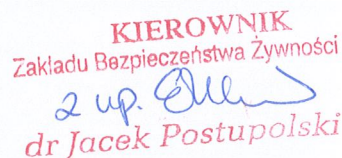 KIEROWNIK
Zakładu Bezpieczeństwa Żywności
z up.
dr Jacek Postupolski